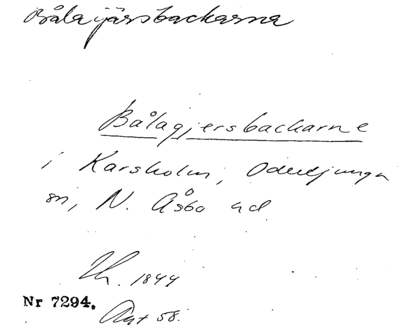 Bålagjärsbackarna
Bålagjersbackarne
i Karsholm, Oderljunga
sn, N. Åsbo hd
Th. 1844
Nr 7294. Akt 58.